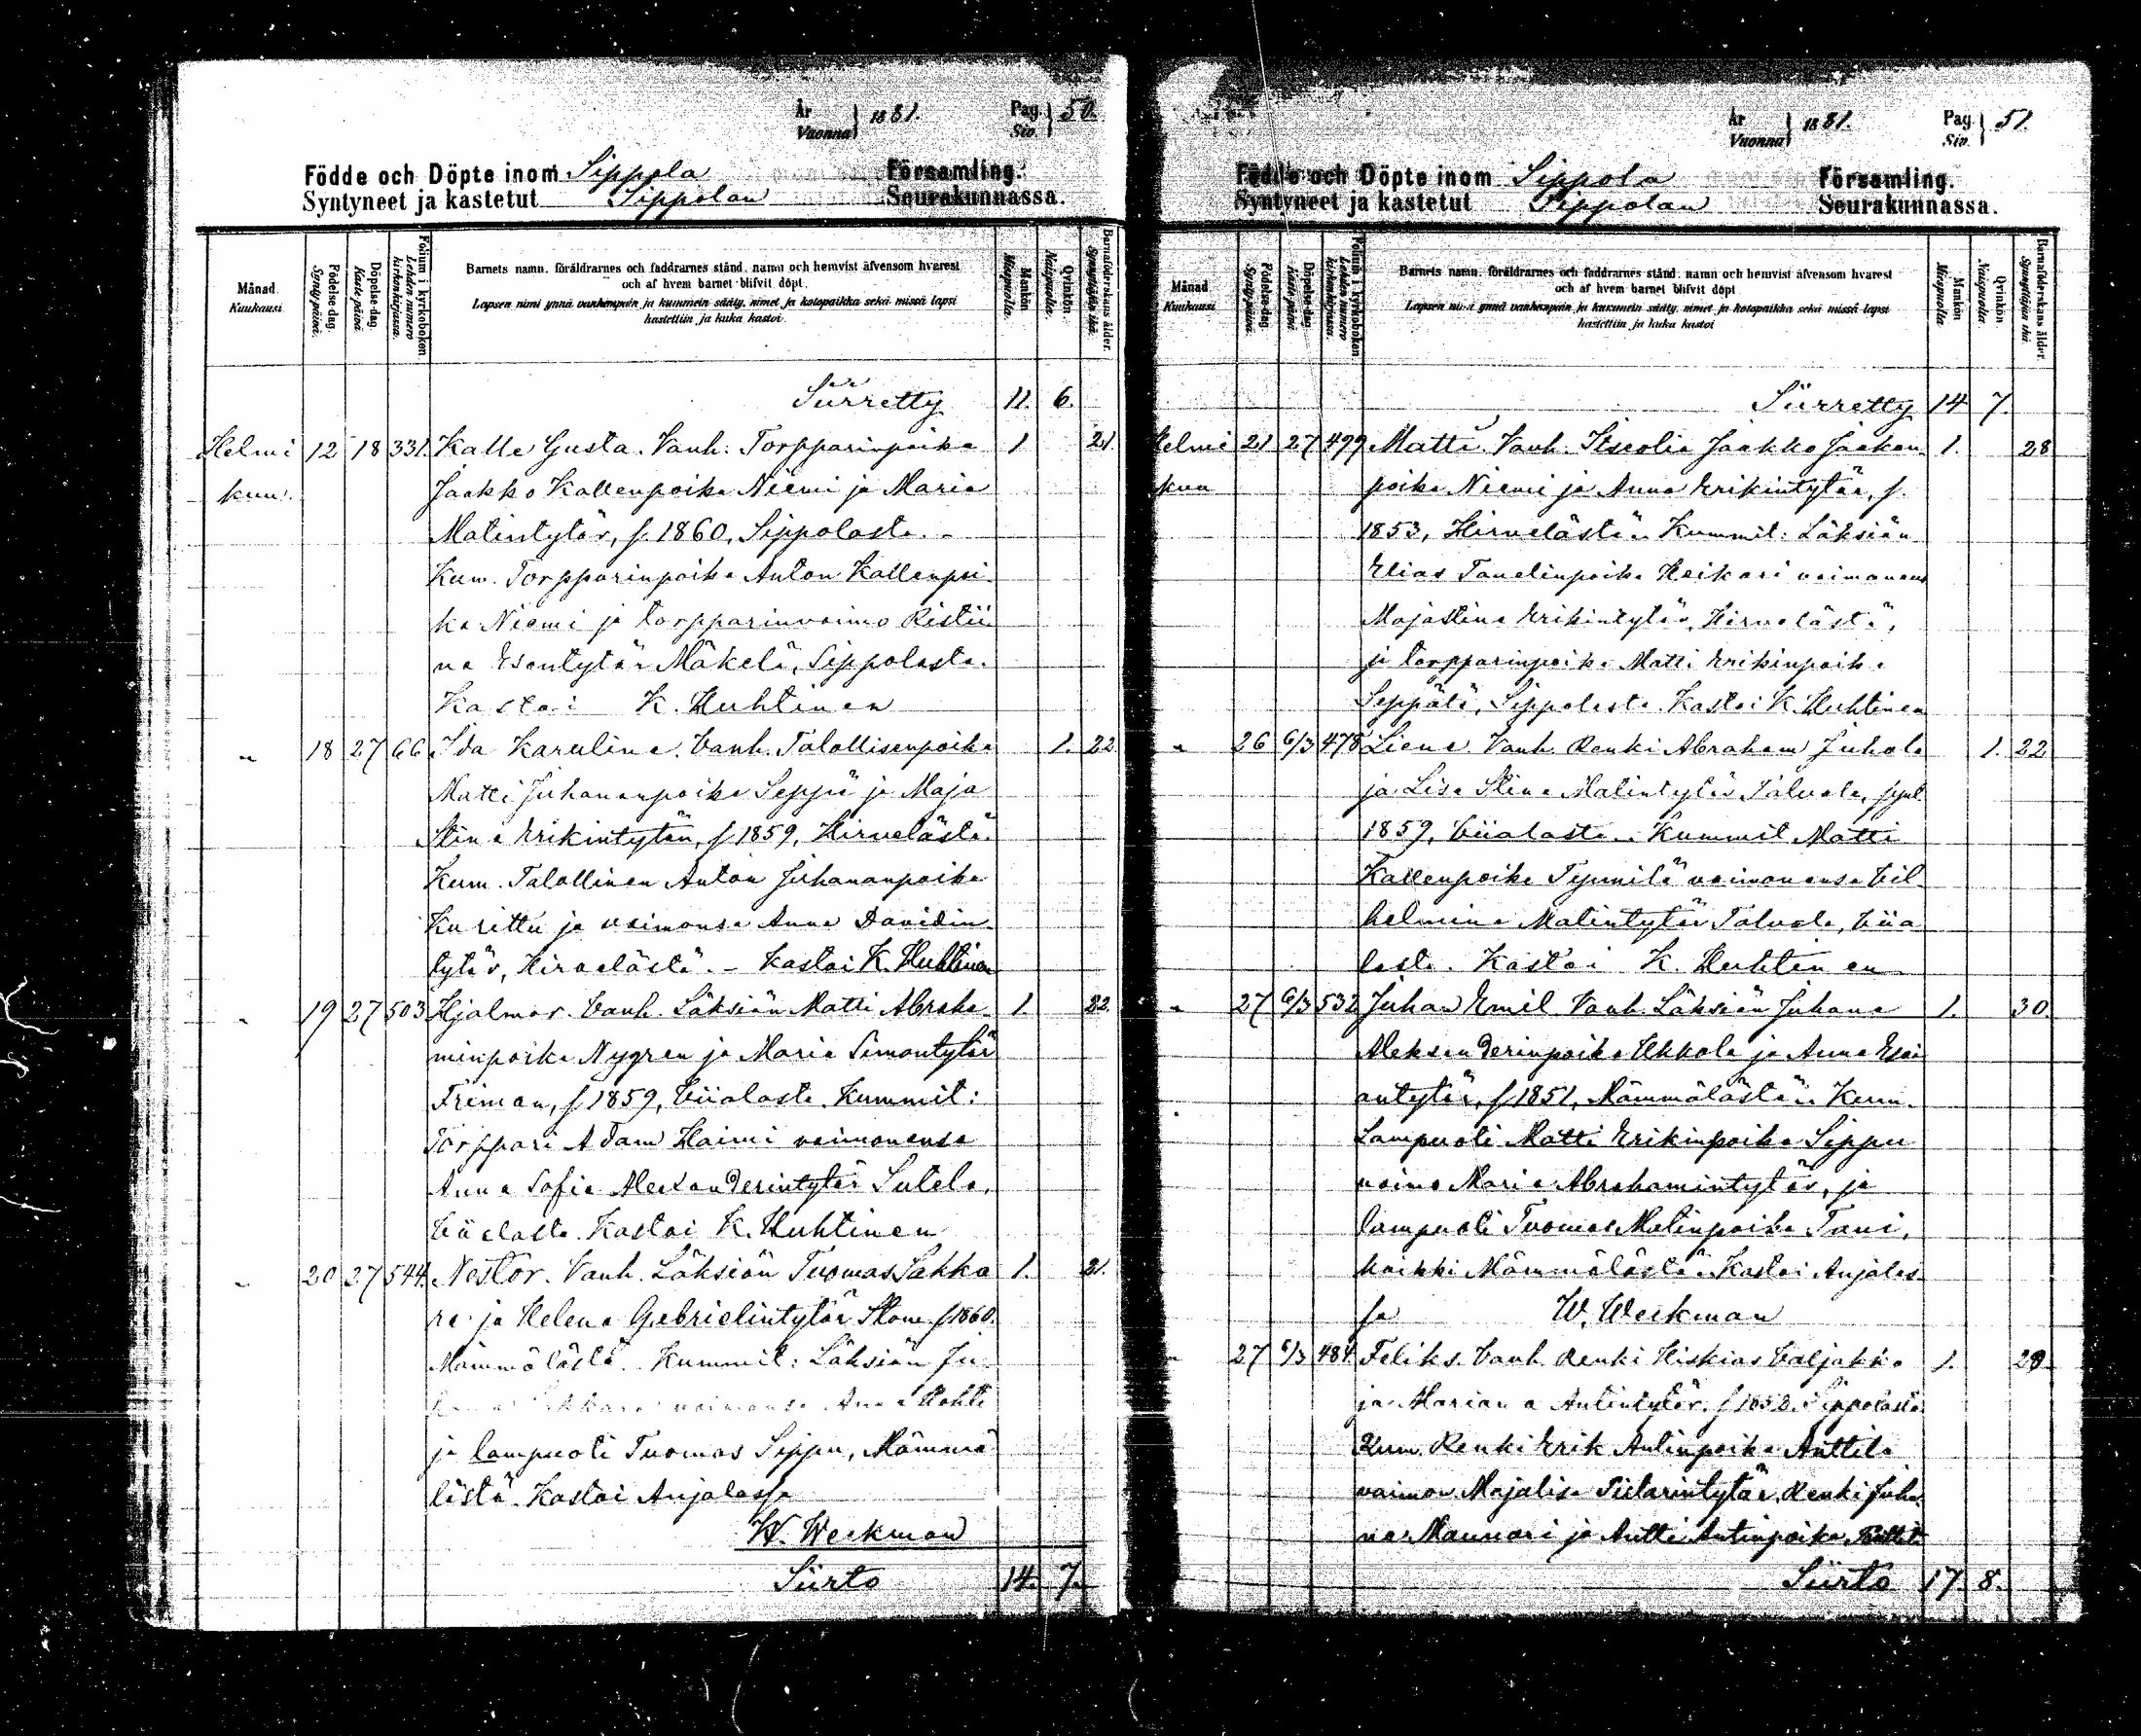 År
Vuonna } 1881. Pag. Siv. } 50.
Födde och Döpte inom Sippola Församling.
Syntyneet ja kastetut Sippolan Seurakunnassa.
Månad. Kuukausi.
Födelse-dag. Synty-päivä.
Döpelse-dag. Kaste-päivä.
Folium i kyrkoboken Lehden numero kirkonkirjassa.
Barnets namn, föräldrarnes och faddrarnes stånd, namn och hemvist äfvensom hvarest
och af hvem barnet blifvit döpt.
Lapsen nimi ynnä vanhempain ja kummein sääty, nimet ja kotopaikka sekä missä lapsi
kastettiin ja kuka kastoi.
Mankön. Miespuolia.
Qvinkön. Naispuolia.
Barnaföderskans ålder. Synnyttäjän ikä.
Siirretty 11. 6.
Helmi 12 18 331. Kalle Gusta. Vanh. Torpparinpoika 1 21.
kuu. Jaakko Kallenpoika Niemi ja Maria
Matintytär, s. 1860, Sippolasta. -
Kum. Torpparinpoika Anton Kallenpoi-
ka Niemi ja torpparinvaimo Ristii
na Esantytär Mäkelä, Sippolasta.
Kastoi K. Huhtinen
" 18 27 66 Ida Karolina. Vanh. Talollisenpoika 1. 22
Matti Juhananpoika Seppä ja Maja
Stina Erikintytär, s 1859, Hirvelästä.
Kum. Talollinen Anton Juhananpoika
Kurittu ja vaimonsa Anna Davidin-
tytär, Hirvelästä. - Kastoi K. Huhtinen
" 19 27 503 Hjalmar. Vanh. Läksiän Matti Abraha- 1. 22.
minpoika Nygren ja Maria Simontytär
Friman, s. 1859, Viialasta. Kummit:
Torppari Adam Haimi vaimonensa
Anna Sofia Aleksanderintytär Sutela,
Viialasta. Kastoi K. Huhtinen
" 20 27 544. Nestor. Vanh. Läksiän Tuomas Sakka 1. 21.
ra ja Helena Gabrielintytär s 1860.
Mämmälästä. Kummit: Läksiän Ju-
vaimonsa Anna
ja lampuoti Tuomas Sippu, Mämmä
lästä. Kastoi Anjalassa
W. Weckman
Siirto 14. 7.
År
Vuonna } 1881. Pag. Siv. } 51.
Födde och Döpte inom Sippola Församling.
Syntyneet ja kastetut Sippolan Seurakunnassa.
Månad. Kuukausi
Födelse-dag. Synty-päivä.
Döpelse-dag. Kaste-päivä
Folium i kyrkoboken Lehden numero kirkonkirjassa.
Barnets namn, föräldrarnes och faddrarnes stånd, namn och hemvist äfvensom hvarest
och af hvem barnet blifvit döpt
Lapsen nimi ynnä vanhempain ja kummein sääty, nimet ja kotopaikka sekä missä lapsi
kastettiin ja kuka kastoi
Mankön Miespuolia
Qvinkön Naispuolia
Barnaföderskans ålder. Synnyttäjän ikä.
Siirretty 14 7.
Helmi 21 27 499 Matti. Vanh. Itseollis Jaakko Jaakon- 1. 28
kuu poika Niemi ja Anna Erikintytär, s.
1853, Hirvelästä. Kummit: Läksiän
Elias Tanelinpoika Heikari vaimonens
Majastina Erikintytär, Hirvelästä,
ja torpparinpoika Matti Erikinpoika
Seppälä, Sippolasta. Kastoi K. Huhtinen
" 26 6/3 478 Liena. Vanh. Renki Abraham Juhola 1. 22
ja Lisa Stina Matintytär Talvela, synt.
1859, Viialasta. Kummit Matti
Kallenpoika Tynnilä vaimonensa Vil-
helmina Matintytär Talvola, Viia
lasta. Kastoi K. Huhtinen
" 27 6/3 532 Juhan Emil. Vanh. Läksiän Juhana 1. 30.
Aleksanderinpoika Ukkola ja Anna Esai
antytär, s 1851, Mämmälästä. Kum.
Lampuoti Matti Erikinpoika Sippu
vaimo Maria Abrahamintytär, ja
lampuoti Tuomas Matinpoika Tani,
kaikki Mämmälästä. Kastoi Anjalas-
sa W. Weckman
" 27 6/3 484 Feliks. Vanh. Renki Hiskias Valjakka 1. 29
ja Mariana Antintytär, s 1852. Sippolasta.
Kum. Renki Erik Antinpoika Anttila
vaimon Majalisa Titarintytär, Renki Juha
na Mannari ja Antti Antinpoika Anttila
Siirto 17. 8.